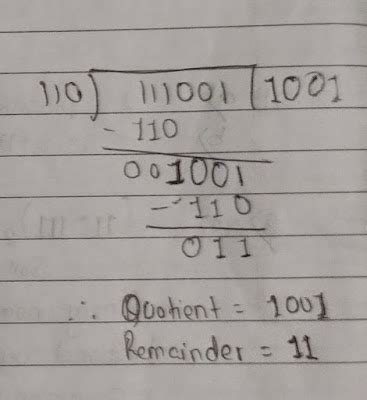 110) 111001 (1001
- 110
001001
- 110
011
∴ Quotient = 1001
Remainder = 11